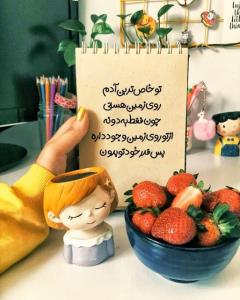 تو خاص‌ترین آدم
روی زمین هستی
چون فقط یه دونه
از تو روی زمین وجود داره
پس قدر خودتو بدون